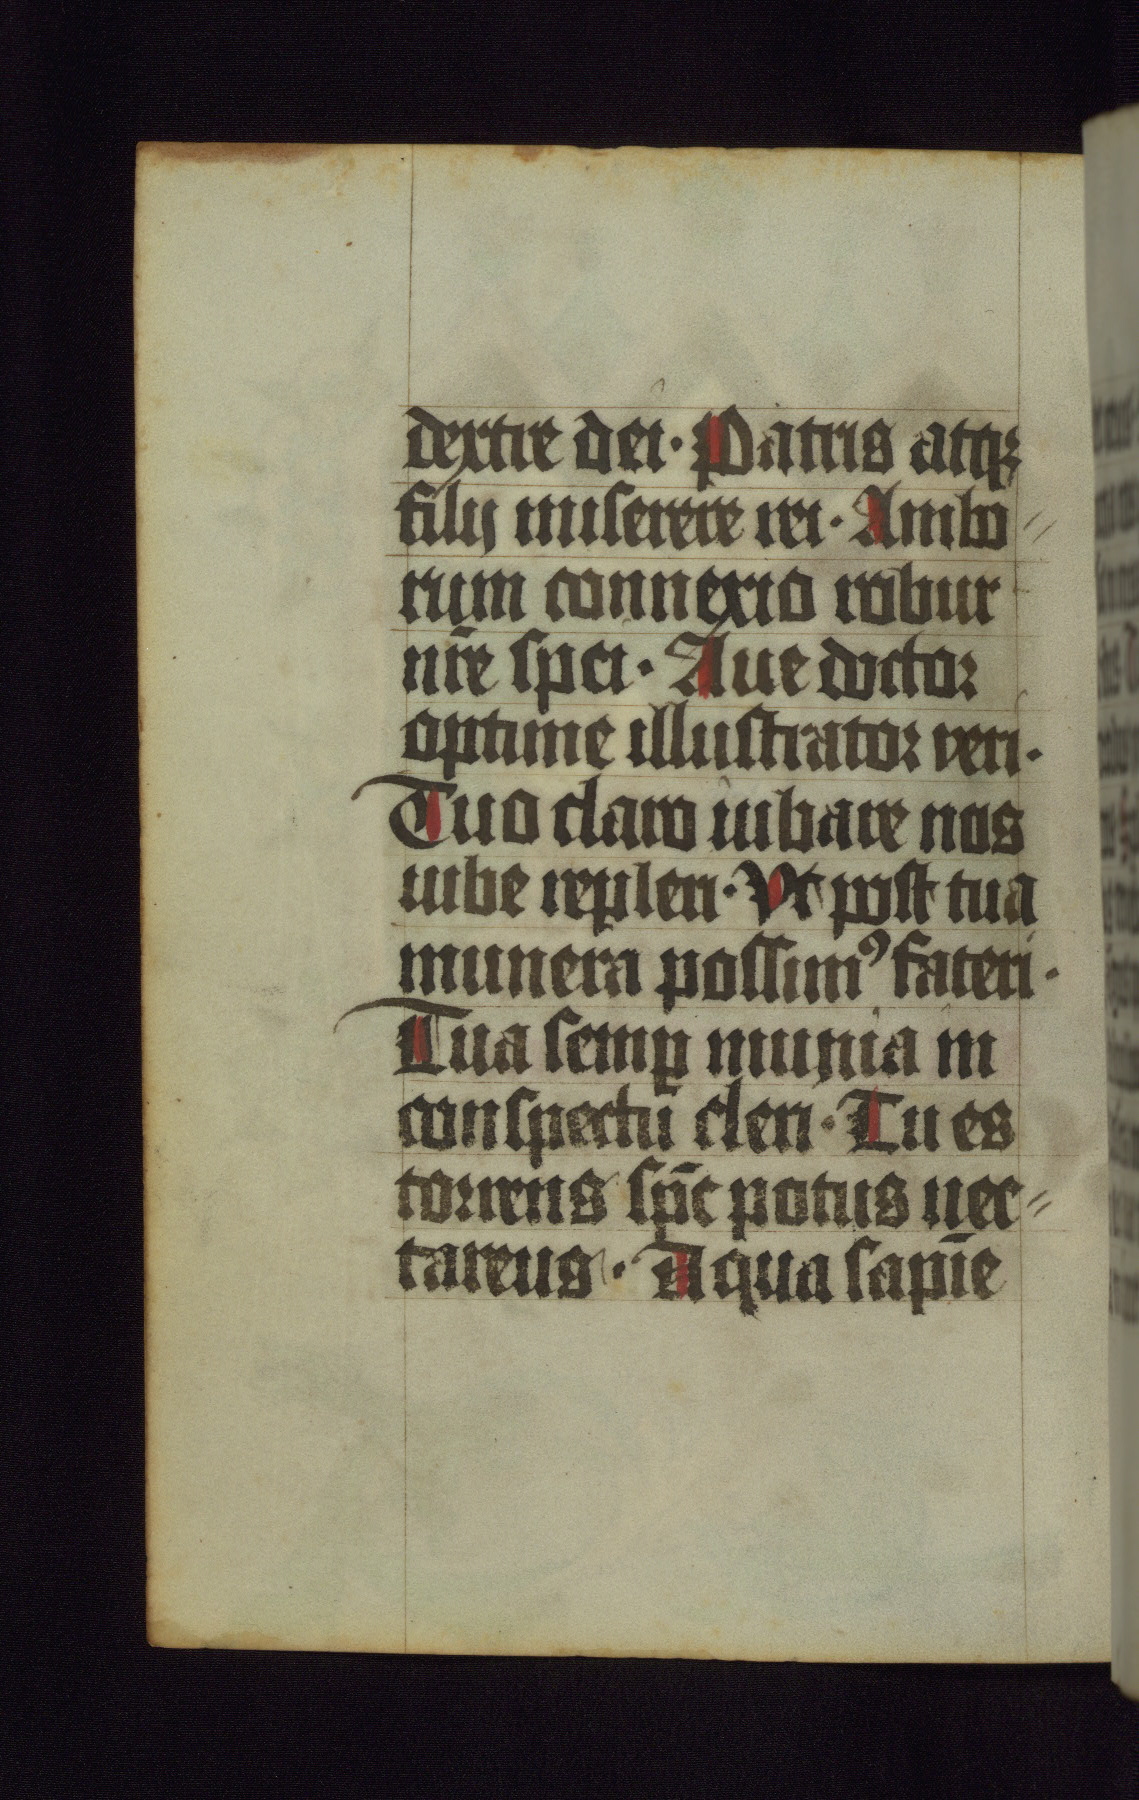 dextre dei · Patris atqꝫ
filij miserere rei · Ambo〃
rum connexio robur
nr̄e spei · Aue doctor
optime illustrator veri ·
Tuo claro iubare nos
iube repleri · Vt post tua
munera possimꝰ fateri ·
Tua semꝑ munia in
conspectū cleri · Tu es
torrens sp̄c potus nec〃
tareus · Aqua sapīe